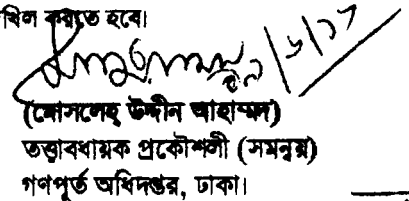 খিল করতে হবে।
(মোসলেহ্ উদ্দীন আহাম্মদ)
তত্ত্বাবধায়ক প্রকৌশলী (সমন্বয়)
গণপূর্ত অধিদপ্তর, ঢাকা।